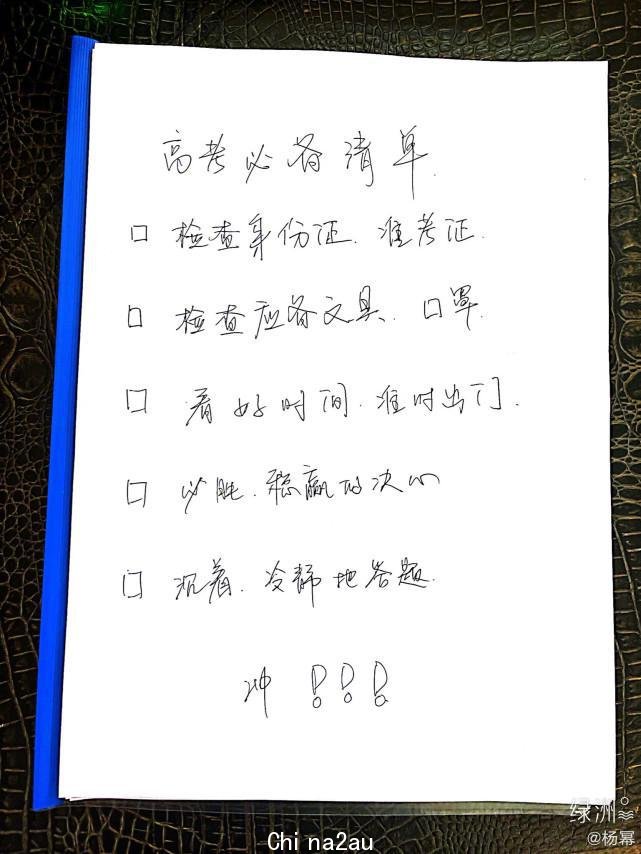 高考必备清单.
□ 检查身份证、准考证.
□ 检查应备文具、口罩.
□ 看好时间、准时出门.
□ 必胜、稳赢的决心
□ 沉着、冷静地答题.
冲!!!
绿洲
@杨幂
Chi na2au